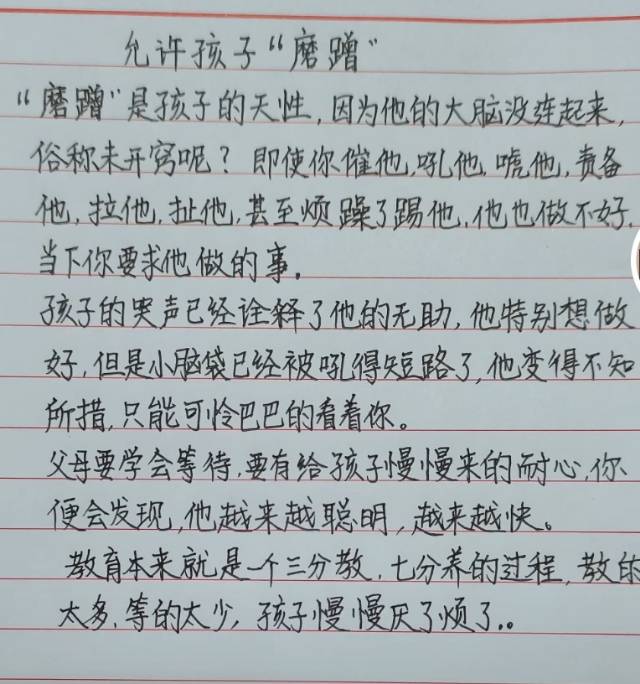 允许孩子“磨蹭”
“磨蹭”是孩子的天性,因为他的大脑没连起来,
俗称未开窍呢?即使你催他,吼他,唬他,责备
他,拉他,扯他,甚至烦躁了踢他,他也做不好,
当下你要求他做的事。
孩子的哭声已经诠释了他的无助,他特别想做
好,但是小脑袋已经被吼得短路了,他变得不知
所措,只能可怜巴巴的看着你。
父母要学会等待,要有给孩子慢慢来的耐心,你
便会发现,他越来越聪明,越来越快。
教育本来就是一个三分教,七分养的过程,教的
太多,等的太少,孩子慢慢厌了烦了。。